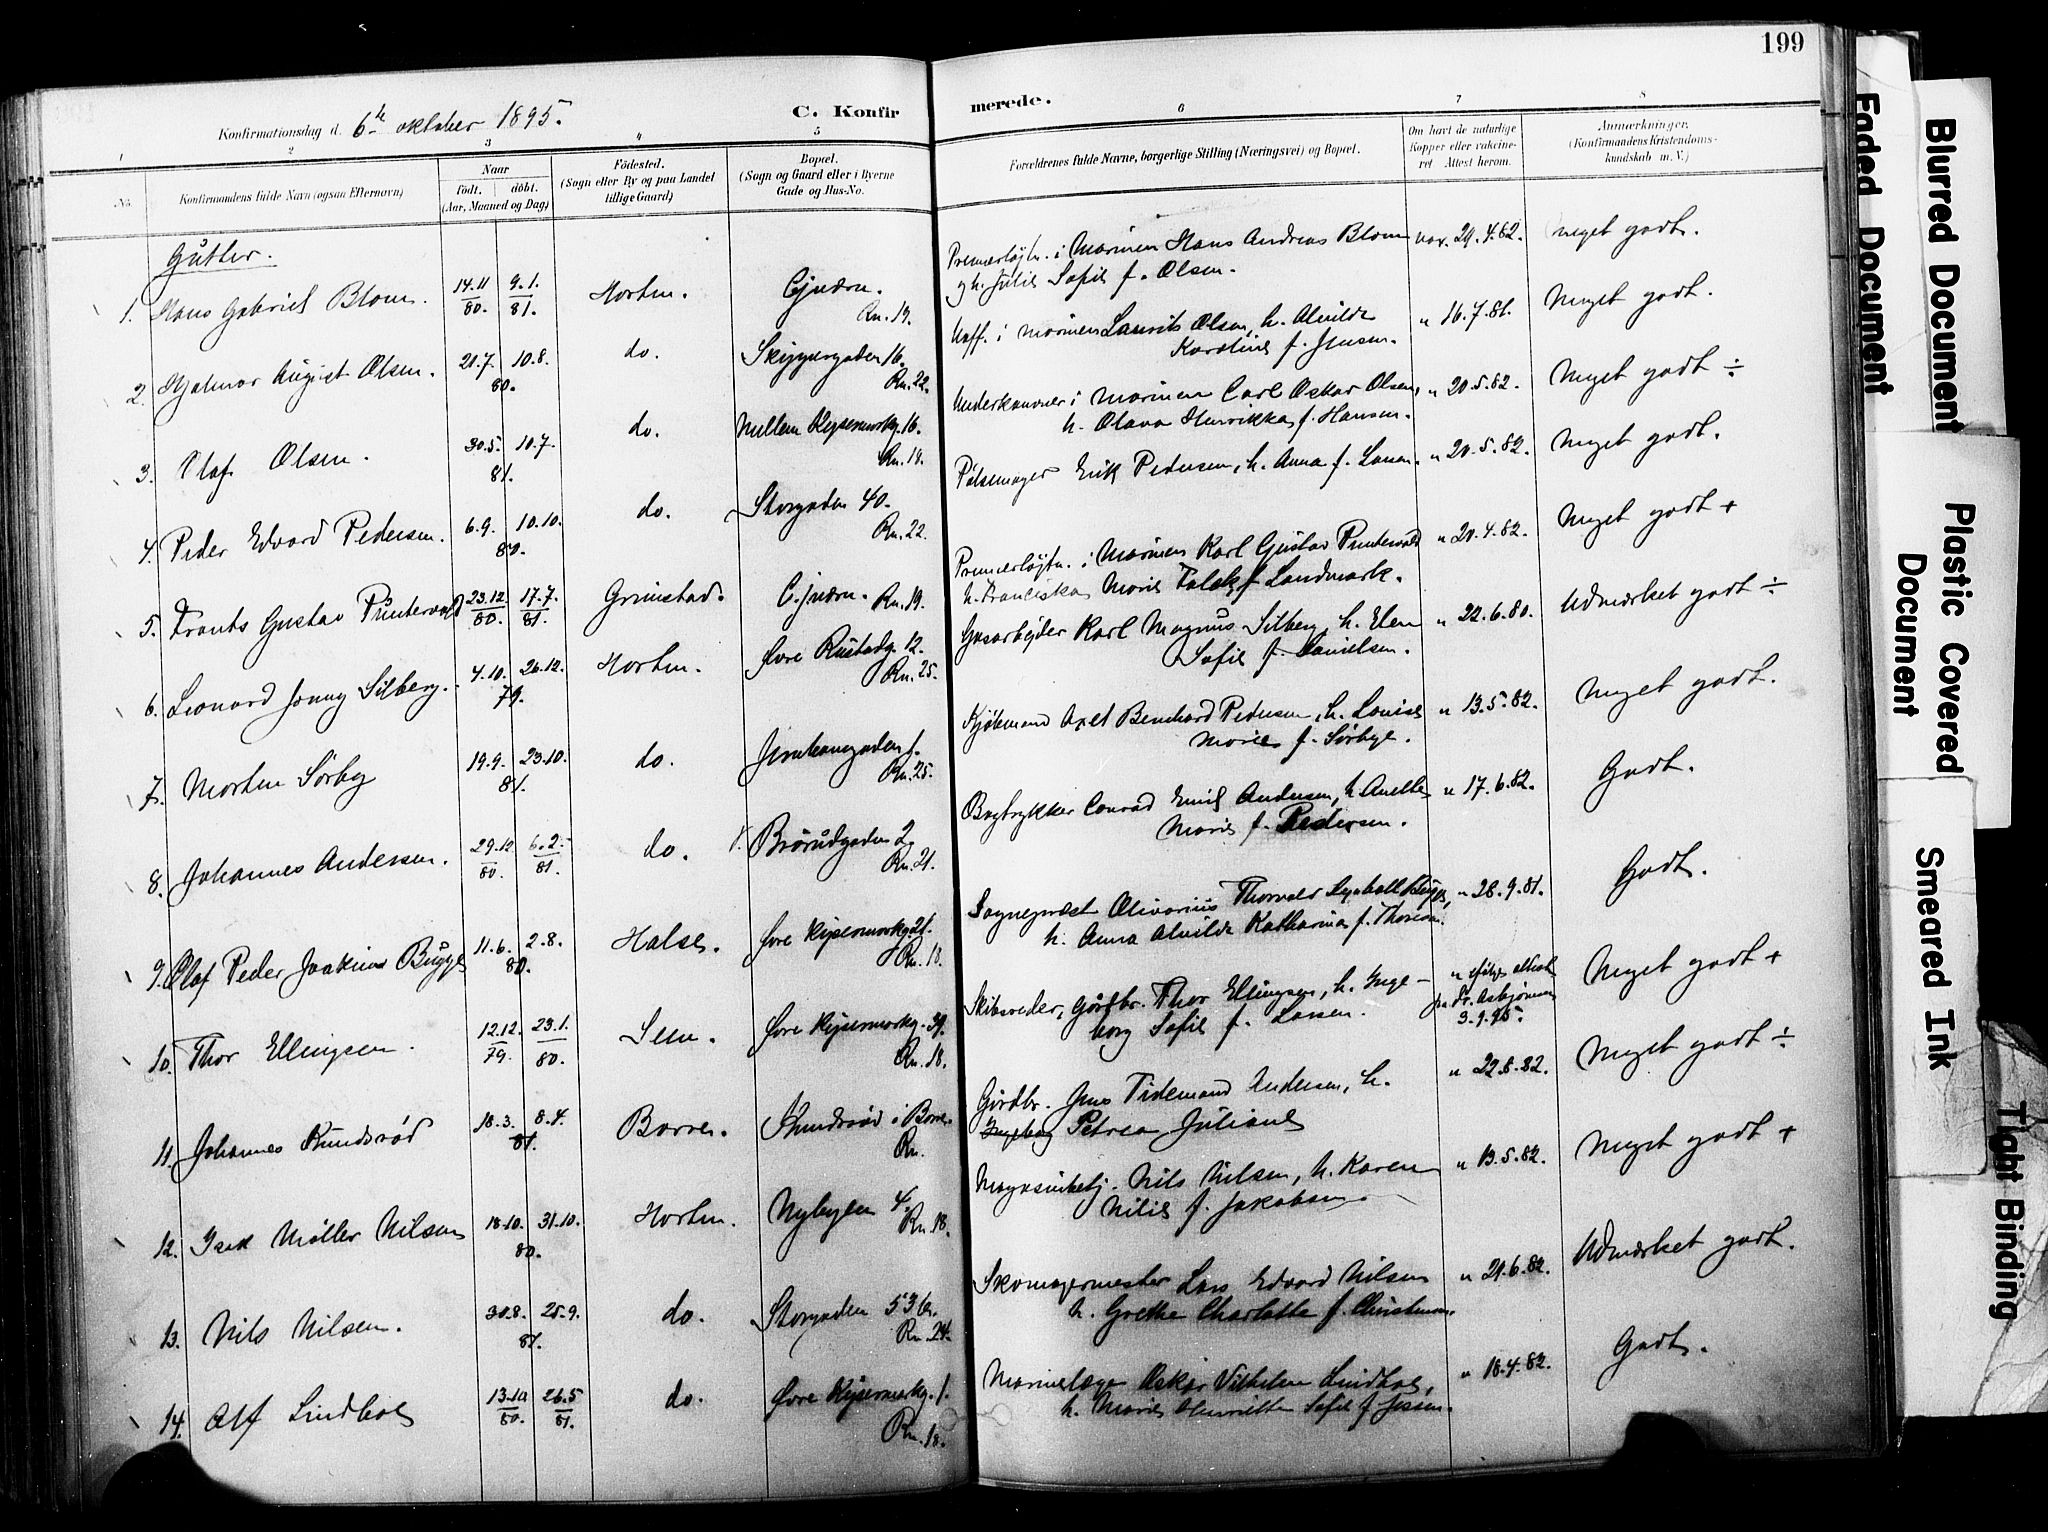 199
Konfirmationsdag d. 6te oktober 1895.
C. Konfirmerede.
1 2 3 4 5 6 7 8
No.
Konfirmandens fulde Navn (ogsaa Efternavn)
Naar
født. døbt.
(Aar, Maaned og Dag)
Fødested.
(Sogn eller By og paa Landet
tillige Gaard)
Bopæl.
(Sogn og Gaard eller i Byerne
Gade og Hus-No.
Forældrenes fulde Navne, borgerlige Stilling (Næringsvei) og Bopæl.
Om havt de naturlige
Kopper eller vakcine-
ret. Attest herom.
Anmærkninger.
(Konfirmandens Kristendoms-
kundskab m. V.)
Gutter.
1. Hans Gabriel Blom. 14.11 80. 9.1. 81. Horten. Rn. 19.
Premierløjtn. i Marinen Hans Andreas Blom
og h. Julie Sofie f. Olsen. vax. 29.4.82. Meget godt.
2. Hjalmar August Olsen. 21.7. 10.8. 80. do. Skippergaden 16. Rn. 22.
Uoff. i Marinen Laurits Olsen, h. Alvilde
Karoline f. Jensen. " 16.7.81. Meget godt.
3. Olaf Olsen. 30.5. 10.7. 81. do. Mellem Keysermarkg. 16. Rn. 19.
Underkanoner i Marinen Carl Oskar Olsen,
h. Olava Henrikka f. Hansen. " 20.5.82. Meget godt ÷
4. Peder Edvard Pedersen. 6.9. 10.10. 80. do. Storgaden 40. Rn. 22.
Pølsemager Erik Pedersen, h. Anna f. Larsen. " 20.5.82. Meget godt.
5. Frants Gustav Puntervold 23.12. 80. 17.7. 81. Grimstad. Rn. 19.
Premierløjtn. i Marinen Karl Gustav Puntervold
h. Franciska Marie Falck f. Landmark. " 20.4.82. Meget godt +
6. Leonard Jonny Silberg. 4.10. 26.12. 79. Horten. Øvre Rustadg. 12. Rn. 25.
Gasarbejder Karl Magnus Silberg, h. Elen
Sofie f. Danielsen. " 22.6.80. Udmærket godt ÷
7. Morten Sørby 19.9. 23.10. 81. do. Jernbanegaden 1. Rn. 25.
Kjøbmand Axel Bernhard Pedersen, h. Louise
Marie f. Sørbye. " 13.5.82. Meget godt.
8. Johannes Andersen. 29.12 80. 6.2. 81. do. Brårudgaden 2. Rn. 21.
Bogtrykker Conrad Emil Andersen, h. Anette
Marie f. Pedersen. " 17.6.82. Godt.
9. Olaf Peder Joakim Bugge 11.6. 2.8. 80. Halse. Øvre Keysermarkg. 21. Rn. 18.
Sogneprest Olivarius Thorvald Bugge,
h. Anna Alvilde Katharina f. " 28.9.81. Godt.
10. Thor Ellingsen. 12.12. 79. 23.1. 80. Sem. Øvre Keysermarkg. 31. Rn. 18.
Skibsreder, Gårdbr. Thor Ellingsen, h. Inge-
borg Sofie f. Larsen. " ifølge attest
fra Dr. Asbjørnsen
3.9.95. Meget godt +
11. Johannes Knudsrød 18.3. 8.4. 81. Borre. Knudsrød i Borre. Rn.
Gårdbr. Jens Tidemand Andersen, h.
Ingeborg Petrea Juliane " 22.5.82. Meget godt ÷
12. Isak Møller Nilsen 18.10. 31.10. 80. Horten. Nybyen 4. Rn. 18.
Nils Nilsen, h. Karen
Nilie f. Jakobsen. " 13.5.82. Meget godt +
13. Nils Nilsen. 30.8. 25.9. 81. do. Storgaden 53 b. Rn. 24.
Skomagermester Lars Edvard Nilsen
h. Grethe Charlotte f. Christensen. " 21.6.82. Udmærket godt.
14. Alf Lindboe 13.10 80. 26.5 81. do. Øvre Keysermarkg. 1. Rn. 18.
Marinelæge Oskar Vilhelm Lindboe,
h. Marie Henriette Sofie f. Jessen. " 18.4.82. Godt.
Blurred Document
Faded Document
Plastic Covered
Document
Smeared Ink
Tight Binding